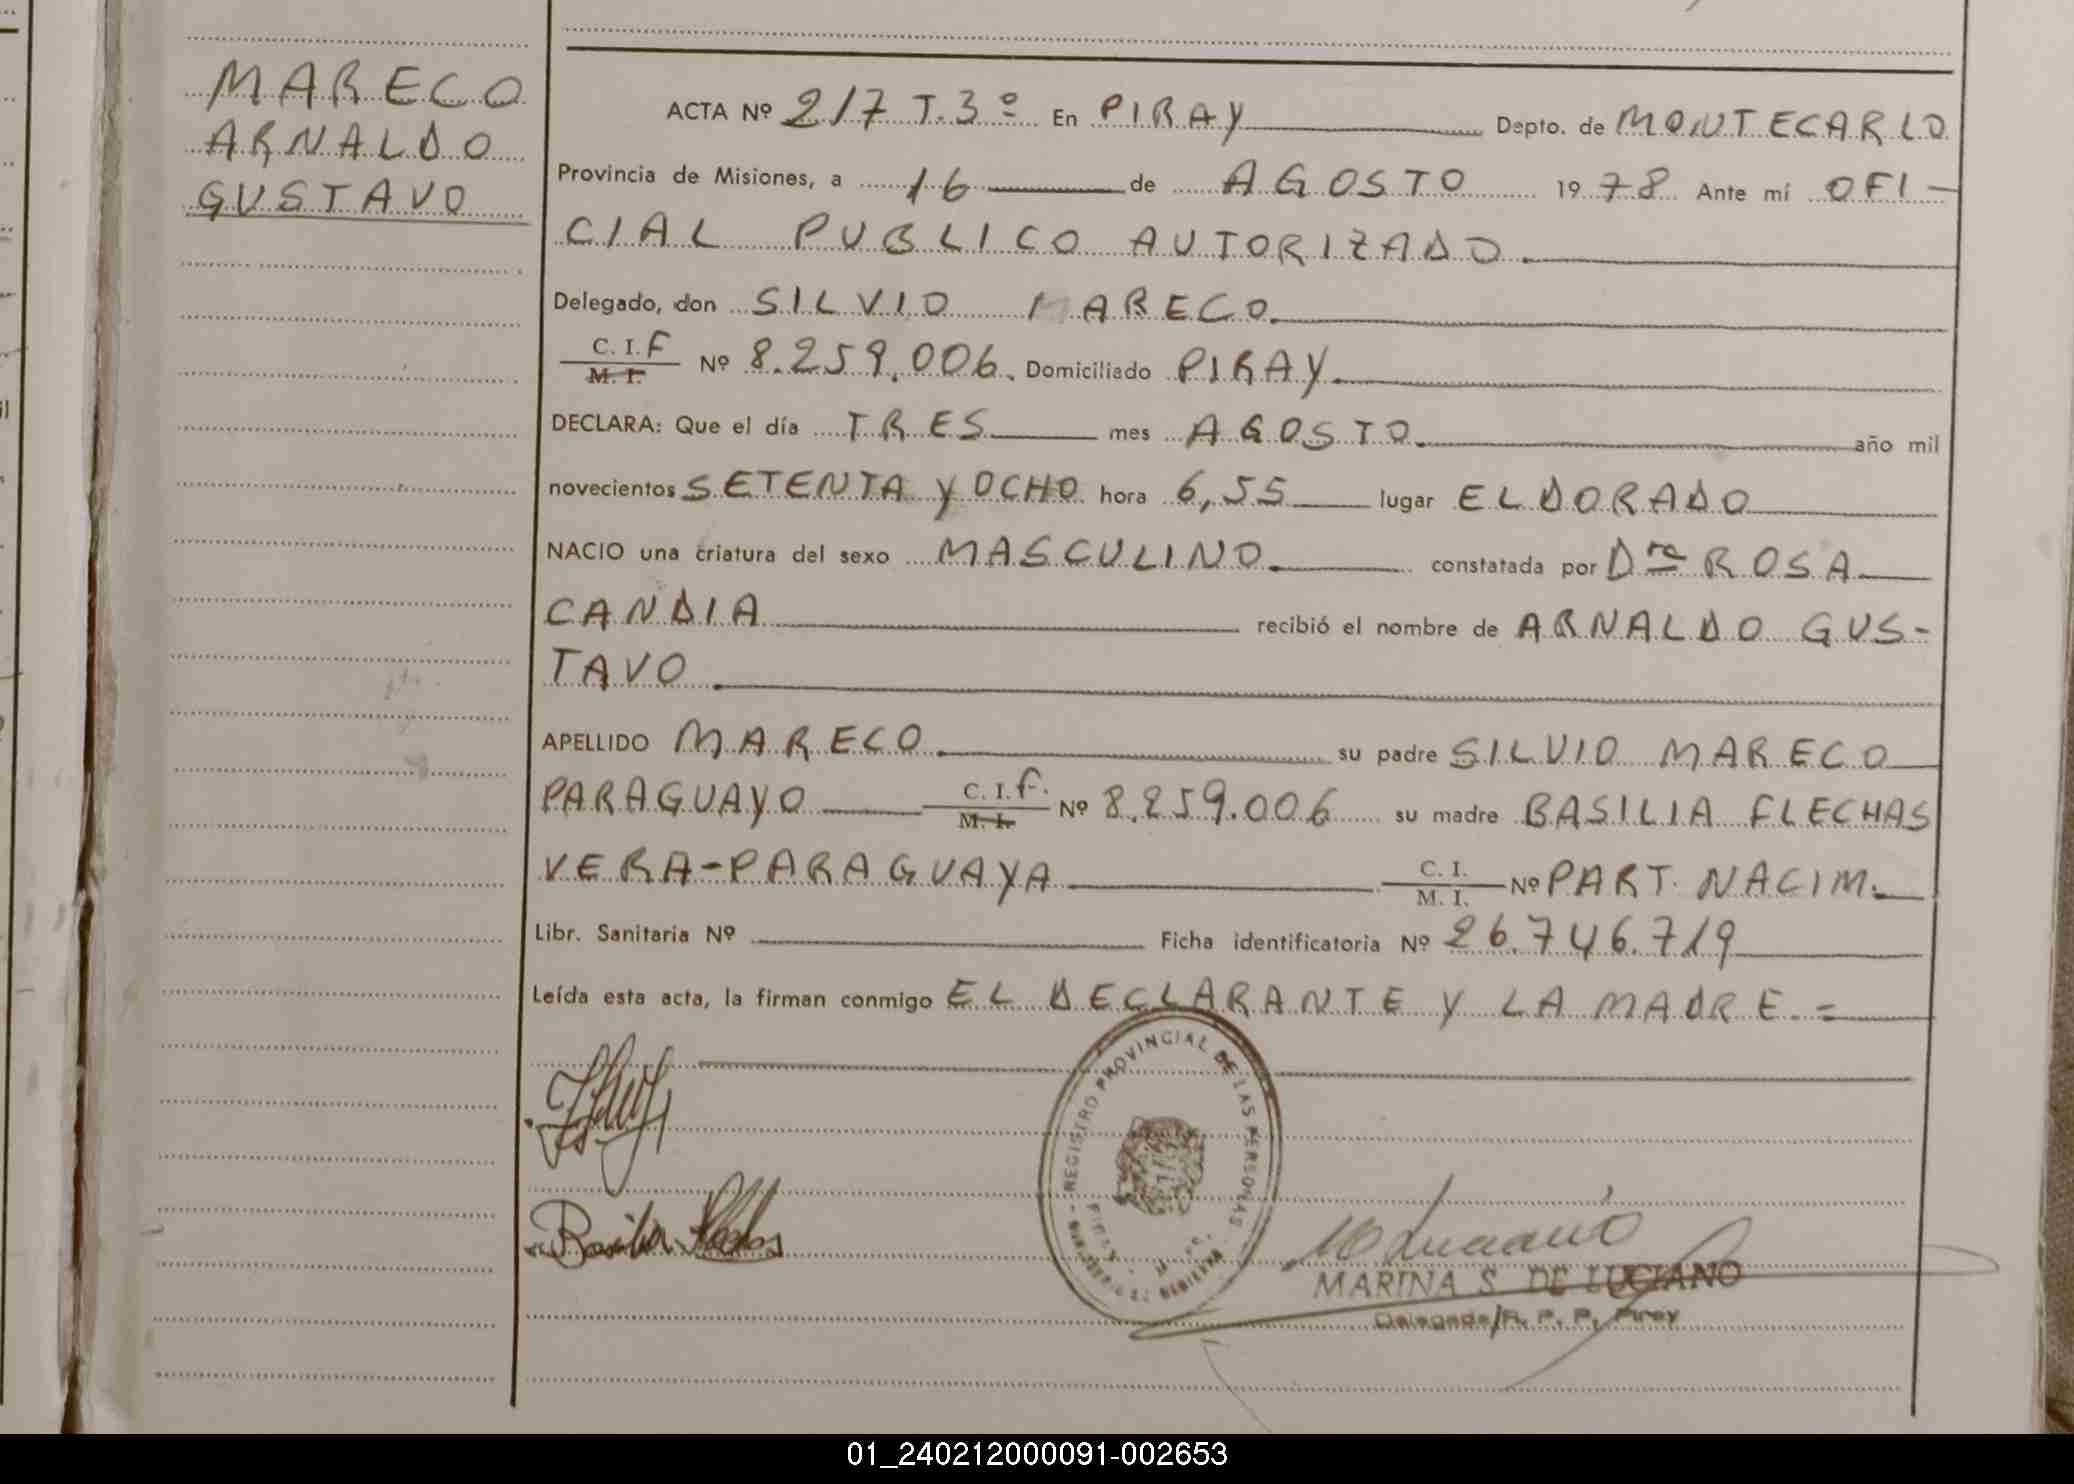 MARECO
ARNALDO
GUSTAVO
ACTA Nº 217 T.3º En PIRAY Depto. de MONTECARLO
Provincia de Misiones, a 16 de AGOSTO 1978 Ante mí OFI-
CIAL PUBLICO AUTORIZADO.
Delegado, don SILVIO MARECO.
C. I. F
M. I. Nº 8.259.006. Domiciliado PIRAY
DECLARA: Que el día TRES mes AGOSTO. año mil
novecientos SETENTA Y OCHO hora 6,55 lugar ELDORADO
NACIO una criatura del sexo MASCULINO. constatada por Dra ROSA
CANDIA recibió el nombre de ARNALDO GUS-
TAVO.
APELLIDO MARECO. su padre SILVIO MARECO
PARAGUAYO C. I. F.
M. I. Nº 8.259.006 su madre BASILIA FLECHAS
VERA-PARAGUAYA C. I.
M. I. Nº PART. NACIM.
Libr. Sanitaria Nº Ficha identificatoria Nº 26.746.719
Leída esta acta, la firman conmigo EL DECLARANTE Y LA MADRE.=
REGISTRO PROVINCIAL DE LAS PERSONAS
Basilia Flechas
M Luciano
MARINA S. DE LUCIANO
Delegada R. P. P. Piray
01_240212000091-002653